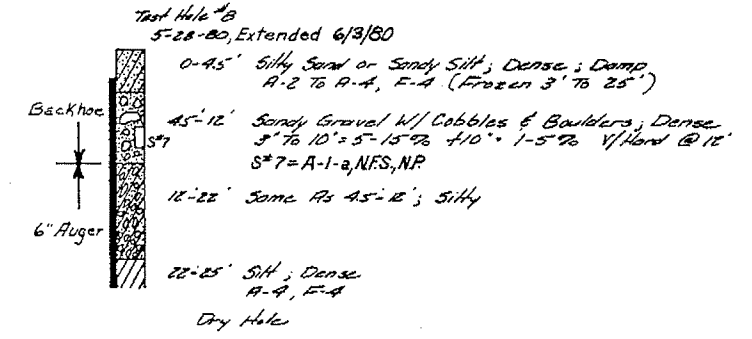 Test Hole #8
5-28-80, Extended 6/3/80
0-4.5' Silty Sand or Sandy Silt; Dense; Damp
A-2 To A-4, F-4 (Frozen 3' To 25')
Backhoe
4.5'-12' Sandy Gravel W/ Cobbles & Boulders; Dense
3" To 10" = 5-15% +10" = 1-5% V/Hard @ 12'
S#7
S#7 = A-1-a, N.F.S., N.P.
12'-22' Same As 4.5'-12'; Silty
6" Auger
22'-25' Silt; Dense
A-4, F-4
Dry Hole